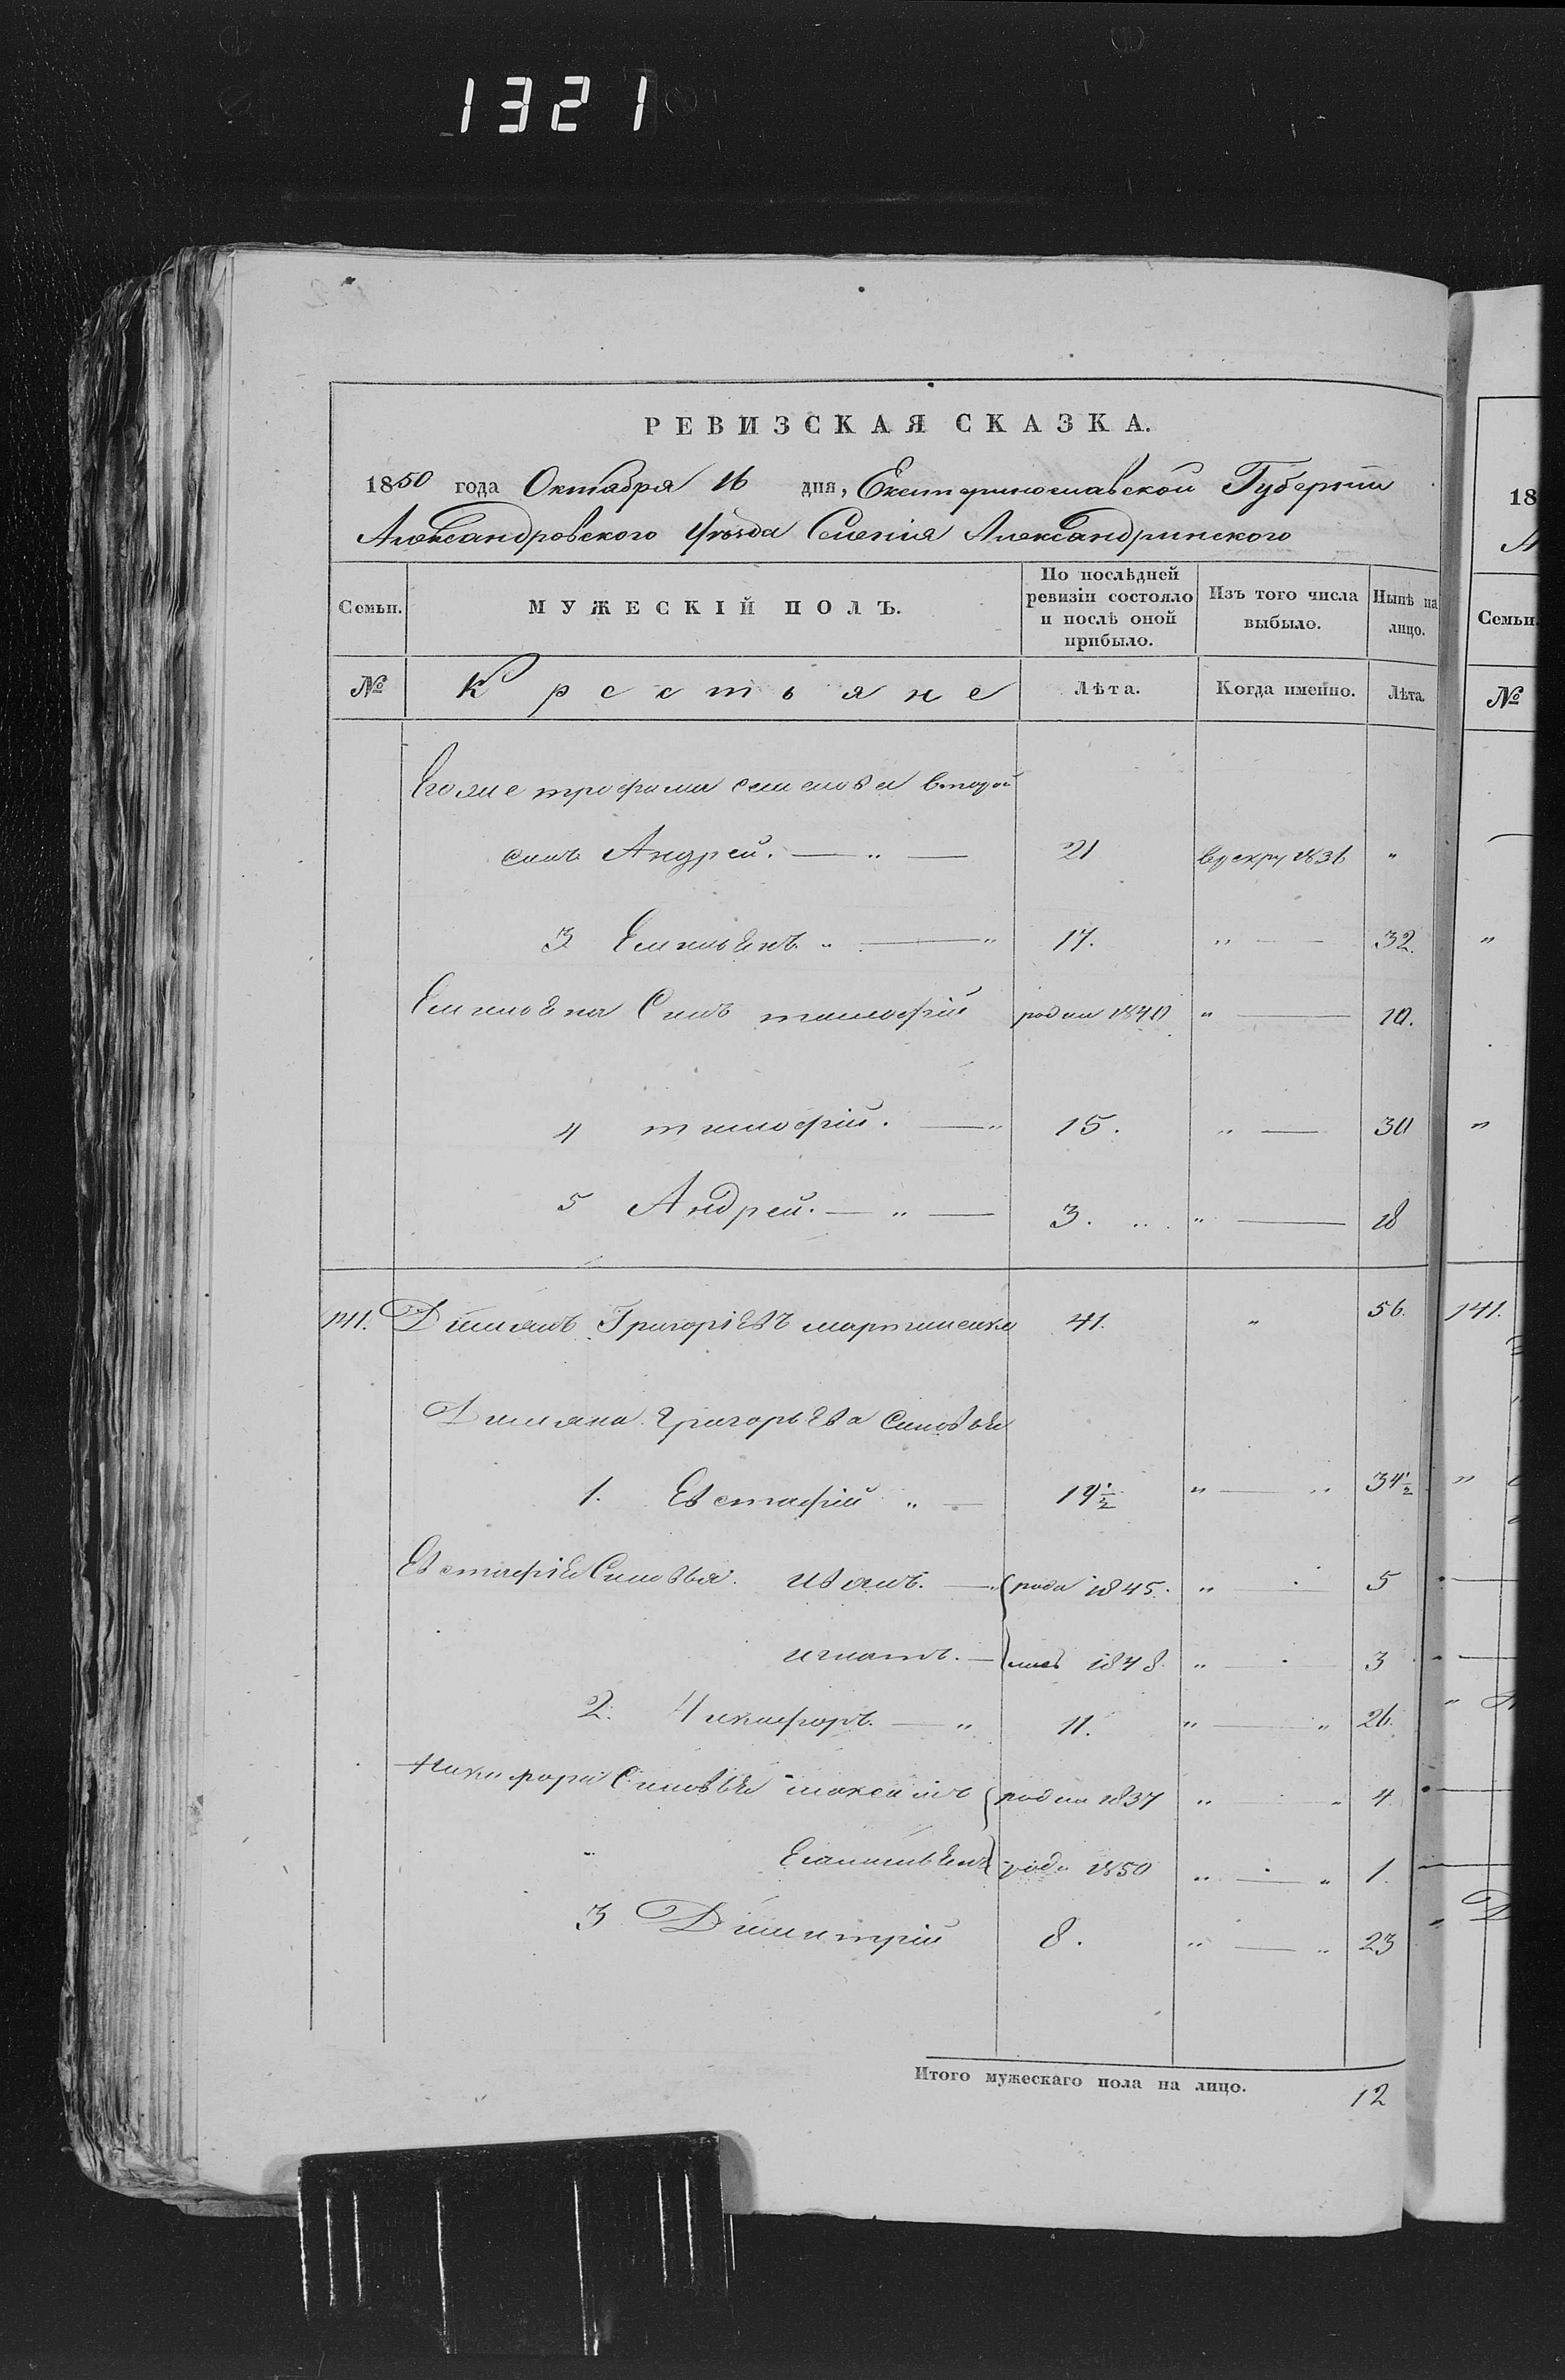 1321
РЕВИЗСКАЯ СКАЗКА.
1850 года Октября 16 дня, Екатеринославской Губерніи
Александровского Уѣзда Селенія Александринского
Семьи. МУЖЕСКІЙ ПОЛЪ. По послѣдней ревизіи состояло и послѣ оной прибыло. Изъ того числа выбыло. Нынѣ на лицо.
№ Крестьяне Лѣта. Когда именно. Лѣта.
трофима семенова второй
синъ Андрей. — „ — 21 врекру 1836 „
3 Емильянъ „ — „ 17. „ — 32.
Емильяна Синъ тимофій родил 1840 „ — 10.
4 тимофій. — „ 15. „ — 30
5 Андрей. — „ — 3. „ — 18
141. Диміянъ Григоріевъ мартиненко 41. „ 56.
Димияна григорьева Синовья
1. Евстафій „ — 19½ „ — „ 34½
Евстафія Синовья. иванъ. — рода 1845. „ — 5
игнатъ. — 1848. „ — 3
2. Никифоръ. — „ 11. „ — „ 26.
Никифора Синовья максимъ родил 1837 „ — „ 4
Емильянъ родил 1850 „ — „ 1.
3 Димитрій 8. „ — „ 23
Итого мужескаго пола на лицо. 12
18
Семьи.
№
141.